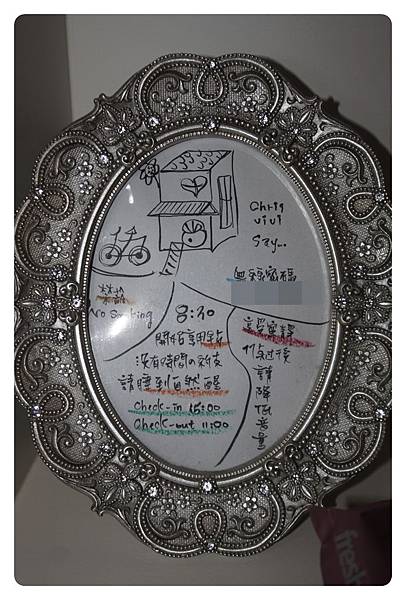 Chris
vivi
Say..
無線密碼
禁菸
No Smoking
8:30
開始享用餐
沒有時間の朋友
請睡到自然醒
Check-in 15:00
Check-out 11:00
享受寧靜
11點過後
請降低音量
fresh